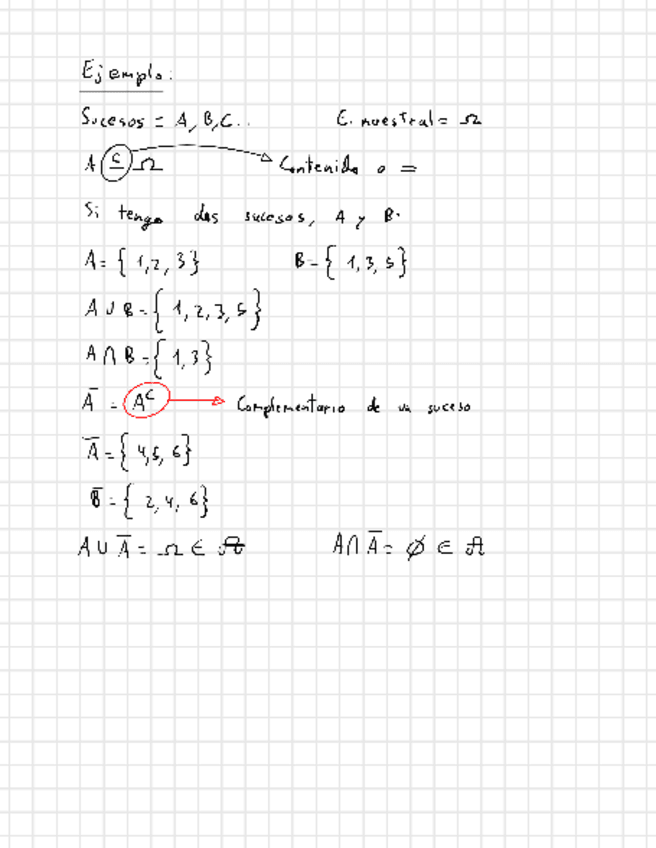 Ejemplo:
Sucesos = A, B, C.. E. muestral = Ω
A ⊆ Ω → Contenido o =
Si tengo dos sucesos, A y B.
A = { 1, 2, 3 } B = { 1, 3, 5 }
A ∪ B = { 1, 2, 3, 5 }
A ∩ B = { 1, 3 }
A̅ = Aᶜ → Complementario de un suceso
A̅ = { 4, 5, 6 }
B̅ = { 2, 4, 6 }
A ∪ A̅ = Ω ∈ 𝔄 A ∩ A̅ = ∅ ∈ 𝔄